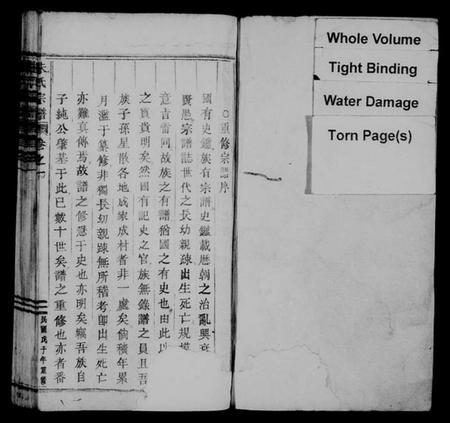 重修宗譜序
國有史鑑族有宗譜史鑑載歷朝之治亂興衰
賢愚宗譜誌世代之長幼親疎出生死亡規模
意吉雷同故族之有譜猶國之有史也由此
之貴貴明矣然國有記史之官族無錄譜之員且吾
族子孫星散各地成家成村者非一處矣倘積年累
月濫于纂修非獨長幼親疎無所稽考即出生死亡
亦難真傳焉故譜之修急于史也亦明矣竊吾族自
子純公肇基于此已數十世矣譜之重修也亦者番
氏宗譜
卷之一
民國戊子年重修
Whole Volume
Tight Binding
Water Damage
Torn Page(s)